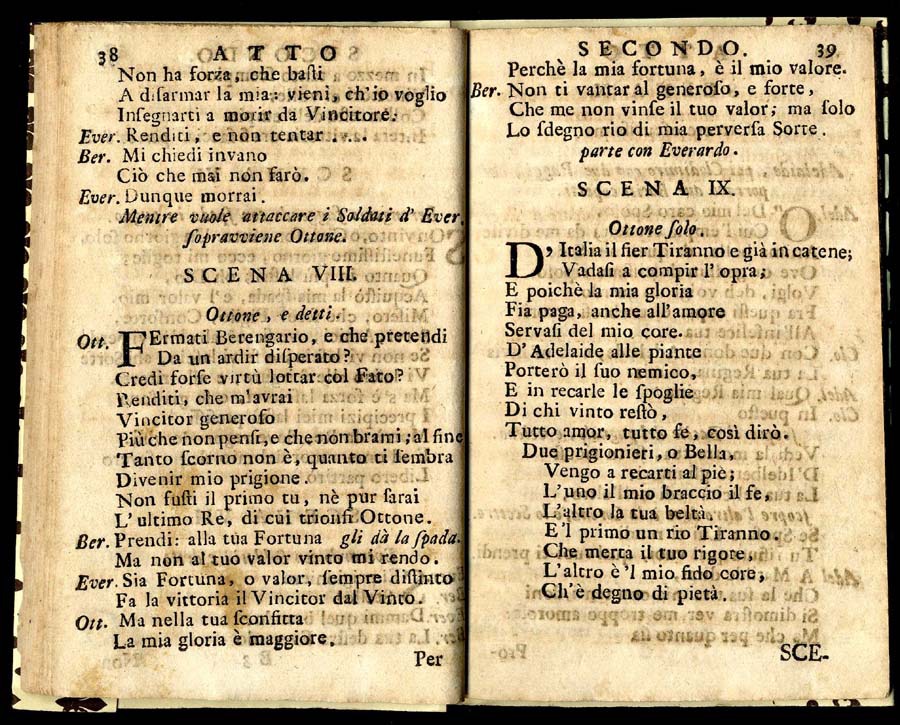 38 ATTO
Non ha forza, che baſti
A diſarmar la mia: vieni, ch'io voglio
Inſegnarti a morir da Vincitore.
Ever. Renditi, e non tentar ....
Ber. Mi chiedi invano
Ciò che mai non farò.
Ever. Dunque morrai.
Mentre vuole attaccare i Soldati d' Ever.
ſopravviene Ottone.
SCENA VIII.
Ottone, e detti.
Ott. FErmati Berengario, e che pretendi
Da un' ardir diſperato?
Credi forſe virtù lottar col Fato?
Renditi, che m'avrai
Vincitor generoſo
Più che non penſi, e che non brami; al fine
Tanto ſcorno non è, quanto ti ſembra
Divenir mio prigione.
Non fuſti il primo tu, nè pur ſarai
L' ultimo Re, di cui trionfi Ottone.
Ber. Prendi: alla tua Fortuna gli dà la ſpada.
Ma non al tuo valor vinto mi rendo.
Ever. Sia Fortuna, o valor, ſempre diſtinto
Fa la vittoria il Vincitor dal Vinto.
Ott. Ma nella tua ſconfitta
La mia gloria è maggiore,
Per
SECONDO. 39
Perchè la mia fortuna, è il mio valore.
Ber. Non ti vantar al generoſo, e forte,
Che me non vinſe il tuo valor; ma ſolo
Lo ſdegno rio di mia perverſa Sorte.
parte con Everardo.
SCENA IX.
Ottone ſolo.
D' Italia il fier Tiranno e già in catene;
Vadaſi a compir l' opra;
E poichè la mia gloria
Fia paga, anche all'amore
Servaſi del mio core.
D' Adelaide alle piante
Porterò il ſuo nemico,
E in recarle le ſpoglie
Di chi vinto reſtò,
Tutto amor, tutto fe, così dirò.
Due prigionieri, o Bella,
Vengo a recarti al piè;
L'uno il mio braccio il fe,
L'altro la tua beltà.
E'l primo un rio Tiranno.
Che merta il tuo rigore,
L'altro è 'l mio fido core,
Ch'è degno di pietà.
SCE-